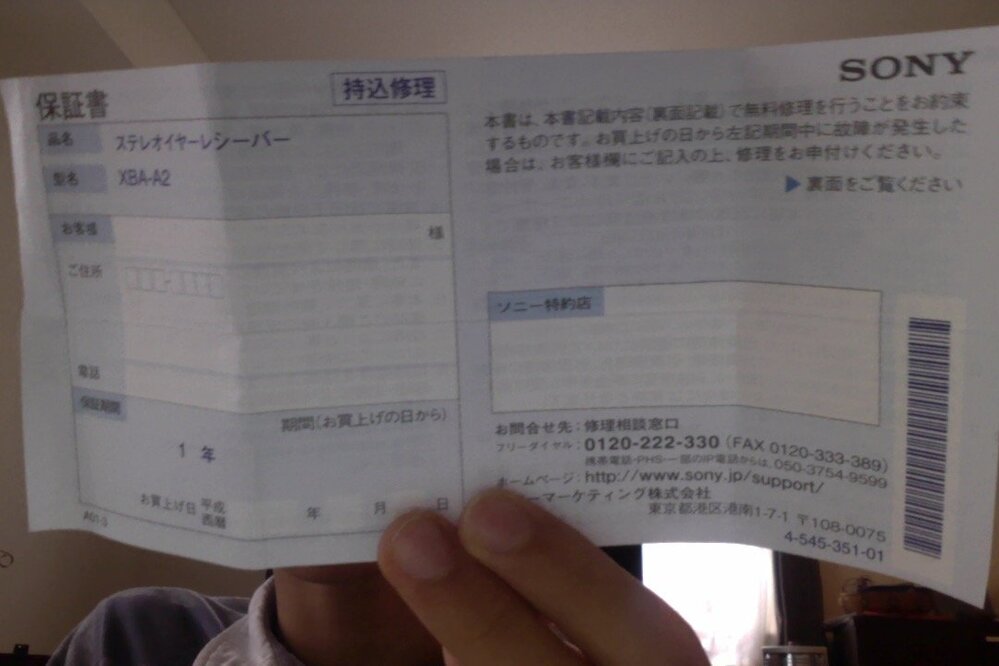 保証書
持込修理
品名 ステレオイヤーレシーバー
型名 XBA-A2
お客様 様
ご住所
電話
保証期間 期間(お買上げの日から)
1 年
お買上げ日 平成
西暦 年 月 日
A01-3
SONY
本書は、本書記載内容(裏面記載)で無料修理を行うことをお約束
するものです。お買上げの日から左記期間中に故障が発生した
場合は、お客様欄にご記入の上、修理をお申付けください。
▶裏面をご覧ください
ソニー特約店
お問合せ先:修理相談窓口
フリーダイヤル:0120-222-330(FAX 0120-333-389)
携帯電話・PHS・一部のIP電話からは、050-3754-9599
ホームページ:http://www.sony.jp/support/
ーマーケティング株式会社
東京都港区港南1-7-1 〒108-0075
4-545-351-01